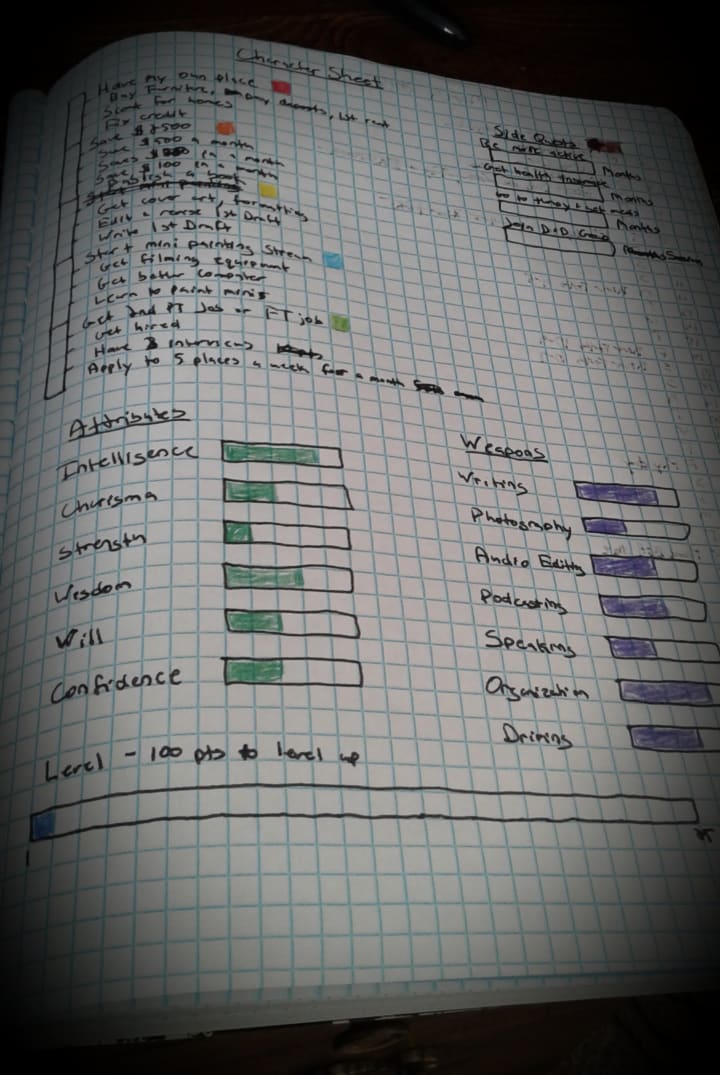 Character Sheet
Have my own place
Buy Furniture, Pay deposits, 1st rent
Scout for homes
Fix credit
Save $7500
Save $500 a month
Save in a month
Save $100 in a month
Publish a book
Get cover art, formatting
Edit & revise 1st Draft
Write 1st Draft
Start mini painting Stream
Get filming equipment
Get better computer
Learn to paint minis
Get 2nd PT Job or FT job
Get hired
Have 3 interviews
Apply to 5 places a week for a month
Side Quests
Be more active
Months
Get health insurance
Months
Go to therapy & get meds
Months
Join D+D Group
Attributes
Intelligence
Charisma
Strength
Wisdom
Will
Confidence
Weapons
Writing
Photography
Audio Editing
Podcasting
Speaking
Organization
Driving
Level - 100 pts to level up
1